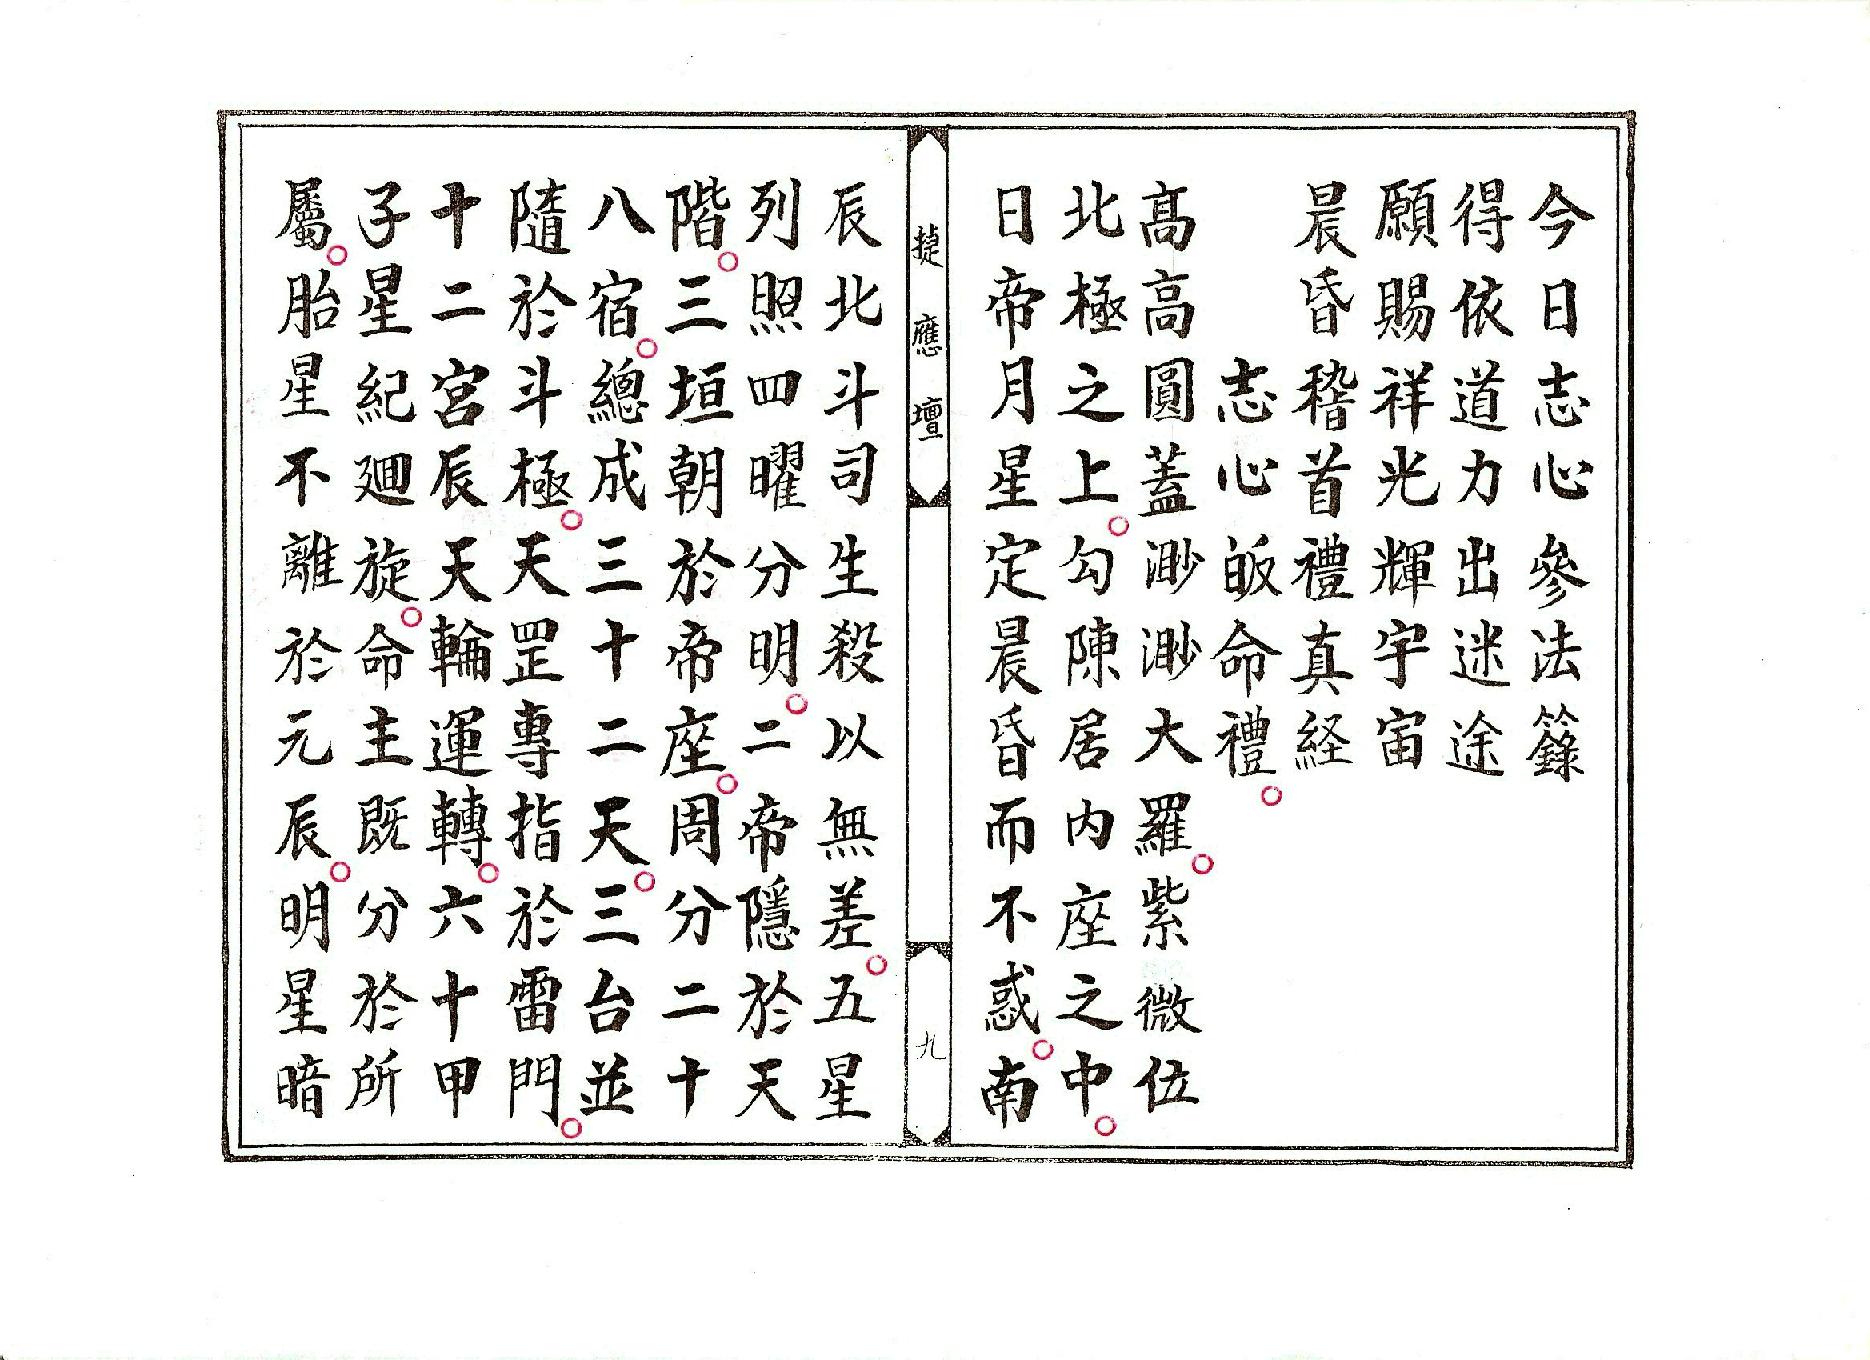 今日志心參法籙
得依道力出迷途
願賜祥光輝宇宙
晨昏稽首禮真経
志心皈命禮。
髙高圓蓋渺渺大羅。紫微位
北極之上。勾陳居内座之中。
日帝月星定晨昏而不惑。南
捷應壇
九
辰北斗司生殺以無差。五星
列照四曜分明。二帝隱於天
階。三垣朝於帝座。周分二十
八宿。總成三十二天。三台並
隨於斗極。天罡專指於雷門。
十二宮辰天輪運轉。六十甲
子星紀廻旋。命主既分於所
屬。胎星不離於元辰。明星暗